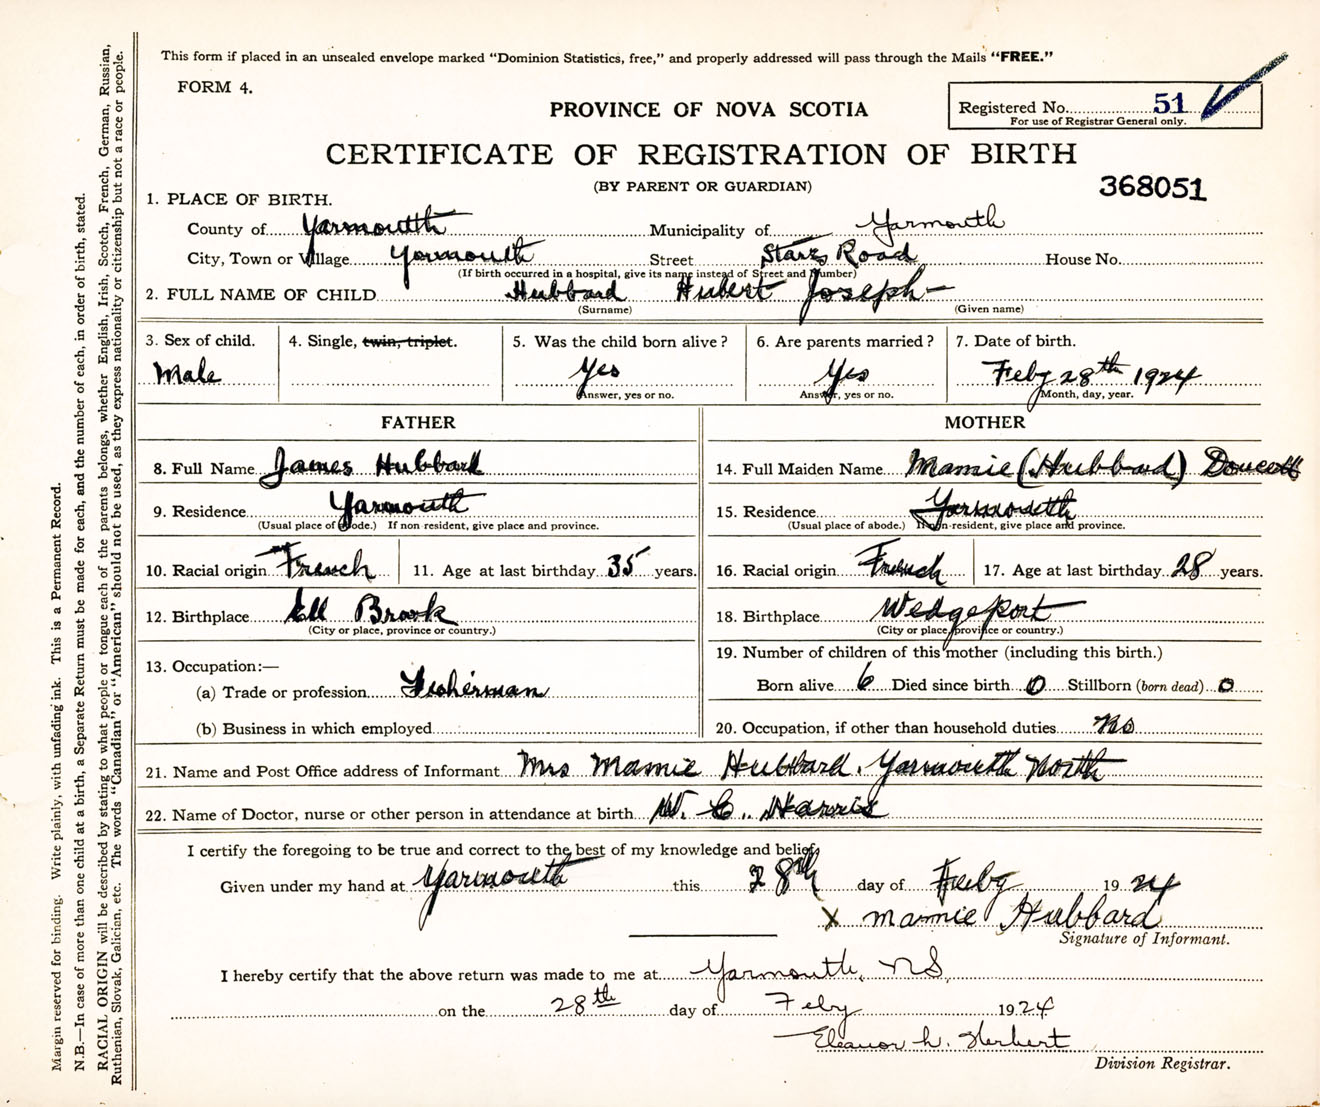 This form if placed in an unsealed envelope marked "Dominion Statistics, free," and properly addressed will pass through the Mails "FREE."
FORM 4.
PROVINCE OF NOVA SCOTIA
Registered No. 51
For use of Registrar General only.
CERTIFICATE OF REGISTRATION OF BIRTH
(BY PARENT OR GUARDIAN)
368051
1. PLACE OF BIRTH.
County of Yarmouth Municipality of Yarmouth
City, Town or Village Yarmouth Street Starrs Road House No.
(If birth occurred in a hospital, give its name instead of Street and Number)
2. FULL NAME OF CHILD Hubbard Hubert Joseph
(Surname) (Given name)
3. Sex of child. 4. Single, twin, triplet. 5. Was the child born alive? 6. Are parents married? 7. Date of birth.
Male Yes Yes Feby 28th 1924
Answer, yes or no. Answer, yes or no. Month, day, year.
FATHER MOTHER
8. Full Name James Hubbard 14. Full Maiden Name Mamie (Hubbard) Doucett
9. Residence Yarmouth 15. Residence Yarmouth
(Usual place of abode.) If non-resident, give place and province. (Usual place of abode.) If non-resident, give place and province.
10. Racial origin French 11. Age at last birthday 35 years. 16. Racial origin French 17. Age at last birthday 28 years.
12. Birthplace Ell Brook 18. Birthplace Wedgeport
(City or place, province or country.) (City or place, province or country.)
13. Occupation:— 19. Number of children of this mother (including this birth.)
(a) Trade or profession Fisherman Born alive 6 Died since birth 0 Stillborn (born dead) 0
(b) Business in which employed 20. Occupation, if other than household duties No
21. Name and Post Office address of Informant Mrs Mamie Hubbard. Yarmouth North
22. Name of Doctor, nurse or other person in attendance at birth W. C. Harris
I certify the foregoing to be true and correct to the best of my knowledge and belief.
Given under my hand at Yarmouth this 28th day of Feby 1924
X Mamie Hubbard
Signature of Informant.
I hereby certify that the above return was made to me at Yarmouth, NS,
on the 28th day of Feby 1924
Eleanor L. Herbert
Division Registrar.
Margin reserved for binding. Write plainly, with unfading ink. This is a Permanent Record.
N.B.—In case of more than one child at a birth, a Separate Return must be made for each, and the number of each, in order of birth, stated.
RACIAL ORIGIN will be described by stating to what people or tongue each of the parents belongs, whether English, Irish, Scotch, French, German, Russian,
Ruthenian, Slovak, Galician, etc. The words "Canadian" or "American" should not be used, as they express nationality or citizenship but not a race or people.